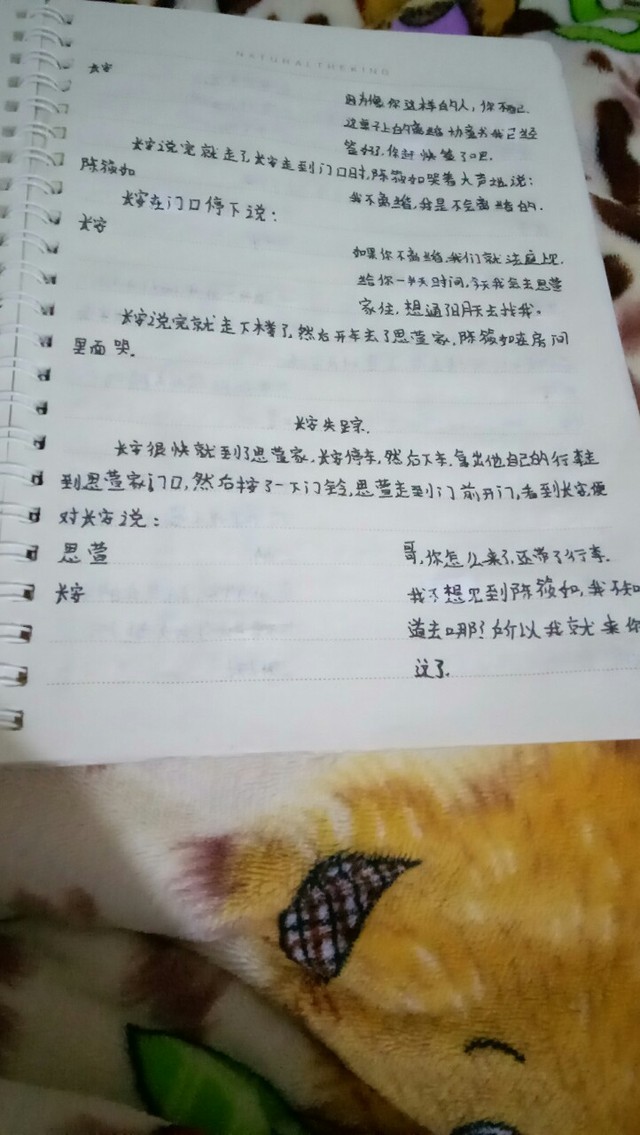 NATURALTHEKING
长安
因为像你这样的人，你不配.
这桌子上的离婚协议书我已经
签好了,你赶快签了吧.
长安说完就走了,长安走到门口时,陈筱如哭着大声地说：
陈筱如
我不离婚,我是不会离婚的.
长安在门口停下说：
长安
如果你不离婚,我们就法庭上见.
给你一天时间,今天我会去思萱
家住，想通明天去找我。
长安说完就走下楼了,然后开车去了思萱家,陈筱如在房间
里面哭.
长安失踪.
长安很快就到了思萱家,长安停车,然后下车,拿出他自己的行李走
到思萱家门口,然后按了一下门铃,思萱走到门前开门,看到长安,便
对长安说：
思萱
哥,你怎么来了,还带了行李.
长安
我不想见到陈筱如,我不知
道去哪？所以我就来你
这了.